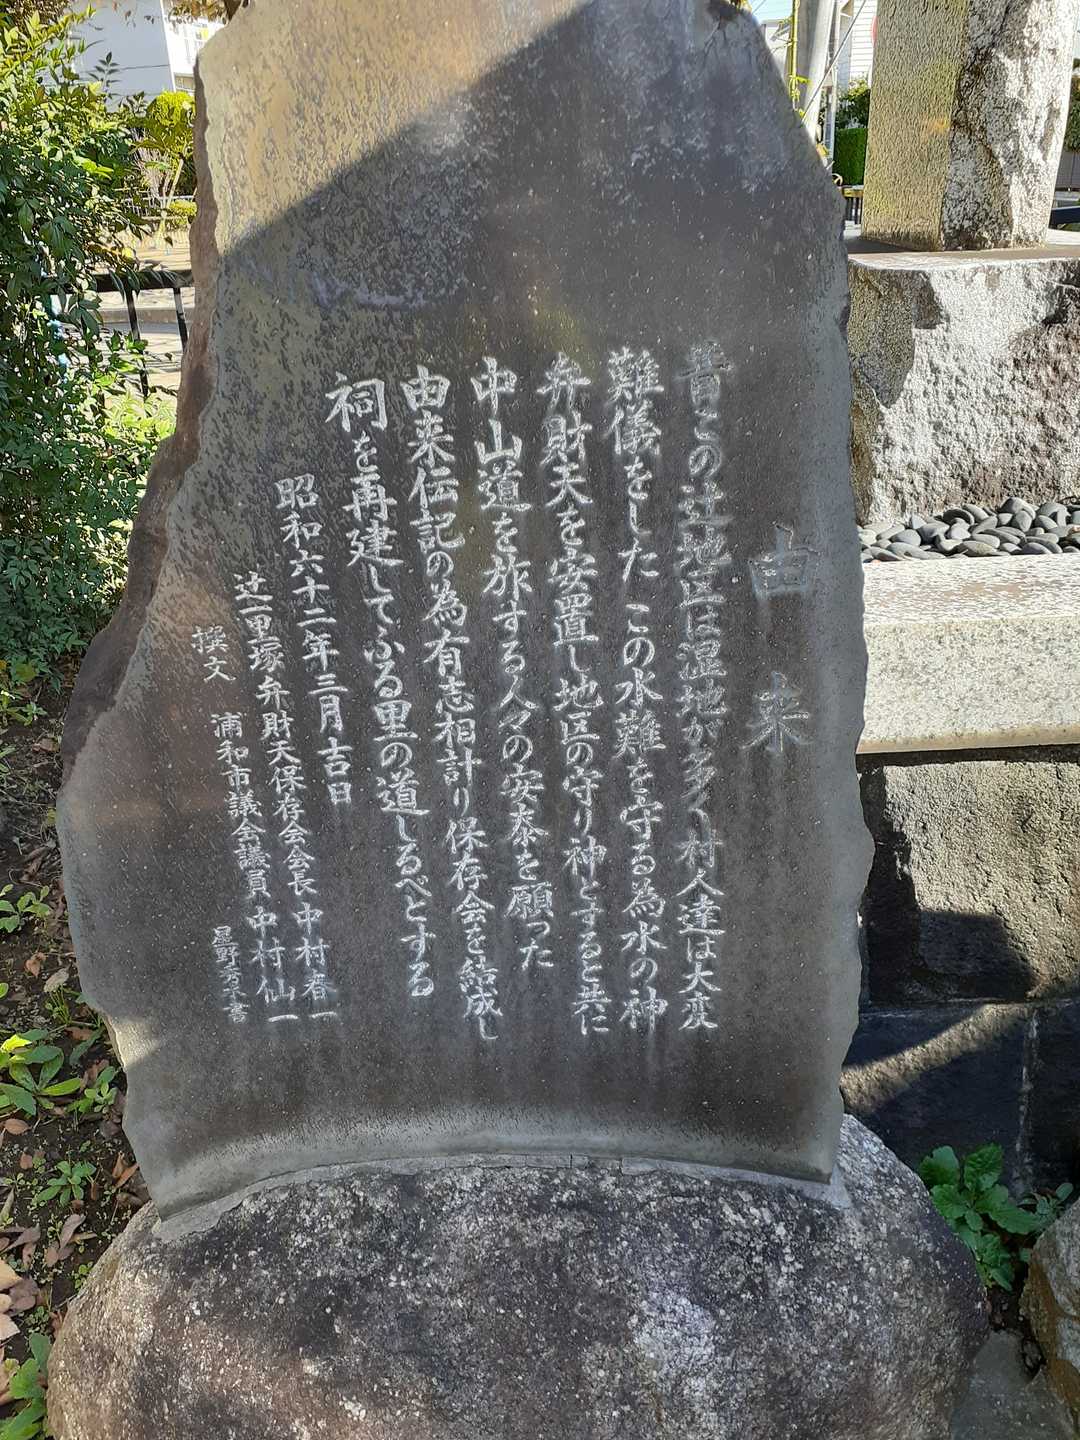 由来
昔この辻地区は湿地が多く村人達は大変
難儀をした この水難を守る為水の神
弁財天を安置し地区の守り神とすると共に
中山道を旅する人々の安泰を願った
由来伝記の為有志相計り保存会を結成し
祠を再建してふる里の道しるべとする
昭和六十二年三月吉日
辻一里塚弁財天保存会会長 中村春一
撰文 浦和市議会議員 中村仙一